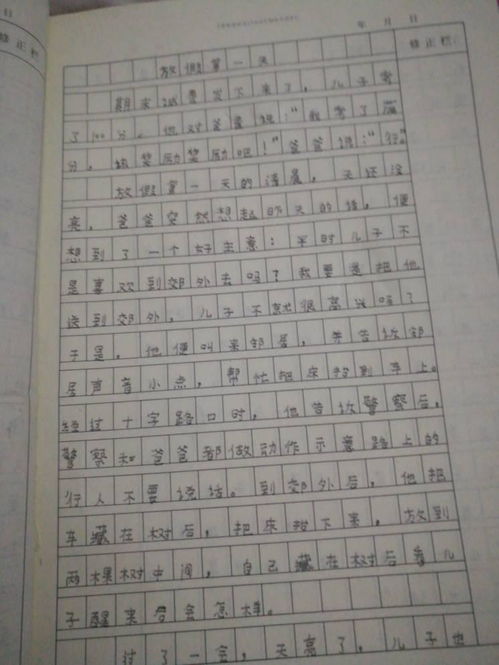 年 月 日
修正栏
放假第一天
期末试卷发下来了，儿子考
了100分。他对爸爸说：“我考了满
分，给奖励奖励吧！”爸爸说：“行。”
放假第一天的清晨，天还没
亮，爸爸突然想起昨天的话，便
想到了一个好主意：平时儿子不
是喜欢到郊外去吗？我要是把他
送到郊外，儿子不就很高兴吗？
于是，他便叫来邻居，并告诉邻
居声音小点，帮忙把床抬到车上。
经过十字路口时，他告诉警察后，
警察和爸爸都做动作示意路上的
行人不要说话。到郊外后，他把
车藏在树后，把床抬下来，放到
两棵树中间，自己藏在树后看儿
子醒来会怎样。
过了一会，天亮了，儿子也
日
修正栏